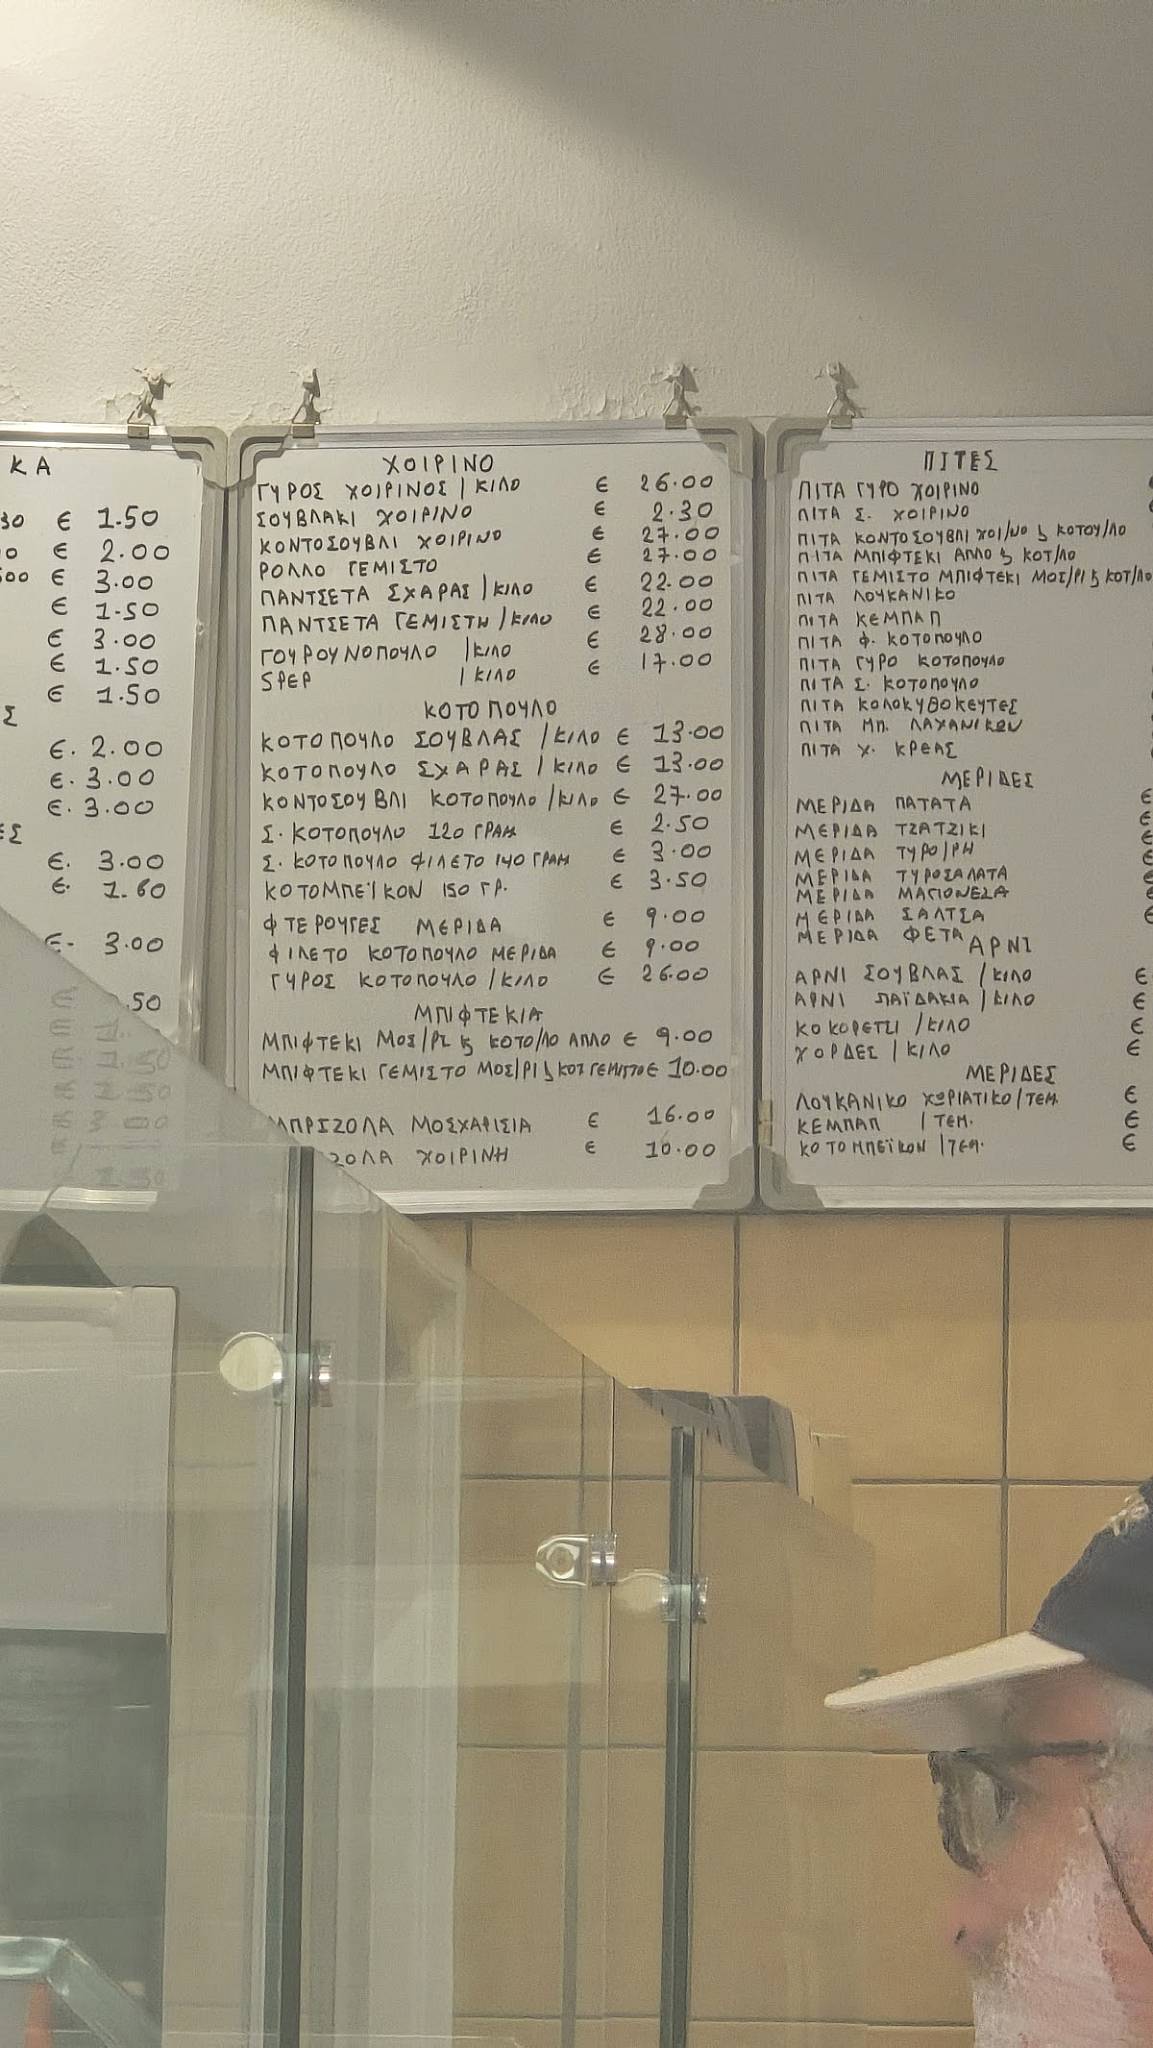 ΚΑ
30 € 1.50
0 € 2.00
500 € 3.00
€ 1.50
€ 3.00
€ 1.50
€ 1.50
Σ
€. 2.00
€. 3.00
€. 3.00
ΕΣ
€. 3.00
€. 1.60
€- 3.00
.50
ΧΟΙΡΙΝΟ
ΓΥΡΟΣ ΧΟΙΡΙΝΟΣ / ΚΙΛΟ € 26.00
ΣΟΥΒΛΑΚΙ ΧΟΙΡΙΝΟ € 2.30
ΚΟΝΤΟΣΟΥΒΛΙ ΧΟΙΡΙΝΟ € 27.00
ΡΟΛΛΟ ΓΕΜΙΣΤΟ € 27.00
ΠΑΝΤΣΕΤΑ ΣΧΑΡΑΣ / ΚΙΛΟ € 22.00
ΠΑΝΤΣΕΤΑ ΓΕΜΙΣΤΗ / ΚΙΛΟ € 22.00
ΓΟΥΡΟΥΝΟΠΟΥΛΟ / ΚΙΛΟ € 28.00
SΡΕΡ / ΚΙΛΟ € 17.00
ΚΟΤΟΠΟΥΛΟ
ΚΟΤΟΠΟΥΛΟ ΣΟΥΒΛΑΣ / ΚΙΛΟ € 13.00
ΚΟΤΟΠΟΥΛΟ ΣΧΑΡΑΣ / ΚΙΛΟ € 13.00
ΚΟΝΤΟΣΟΥΒΛΙ ΚΟΤΟΠΟΥΛΟ / ΚΙΛΟ € 27.00
Σ. ΚΟΤΟΠΟΥΛΟ 120 ΓΡΑΜ € 2.50
Σ. ΚΟΤΟΠΟΥΛΟ ΦΙΛΕΤΟ 140 ΓΡΑΜ € 3.00
ΚΟΤΟΜΠΕΪΚΟΝ 150 ΓΡ. € 3.50
ΦΤΕΡΟΥΓΕΣ ΜΕΡΙΔΑ € 9.00
ΦΙΛΕΤΟ ΚΟΤΟΠΟΥΛΟ ΜΕΡΙΔΑ € 9.00
ΓΥΡΟΣ ΚΟΤΟΠΟΥΛΟ / ΚΙΛΟ € 26.00
ΜΠΙΦΤΕΚΙΑ
ΜΠΙΦΤΕΚΙ ΜΟΣ/ΡΙ ϗ ΚΟΤΟ/ΛΟ ΑΠΛΟ € 9.00
ΜΠΙΦΤΕΚΙ ΓΕΜΙΣΤΟ ΜΟΣ/ΡΙ ϗ ΚΟΤ ΓΕΜΙΣΤΟ € 10.00
ΜΠΡΙΖΟΛΑ ΜΟΣΧΑΡΙΣΙΑ € 16.00
ΖΟΛΑ ΧΟΙΡΙΝΗ € 10.00
ΠΙΤΕΣ
ΠΙΤΑ ΓΥΡΟ ΧΟΙΡΙΝΟ
ΠΙΤΑ Σ. ΧΟΙΡΙΝΟ
ΠΙΤΑ ΚΟΝΤΟΣΟΥΒΛΙ ΧΟΙ/ΝΟ ϗ ΚΟΤΟΥ/ΛΟ
ΠΙΤΑ ΜΠΙΦΤΕΚΙ ΑΠΛΟ ϗ ΚΟΤ/ΛΟ
ΠΙΤΑ ΓΕΜΙΣΤΟ ΜΠΙΦΤΕΚΙ ΜΟΣ/ΡΙ ϗ ΚΟΤ/ΛΟ
ΠΙΤΑ ΛΟΥΚΑΝΙΚΟ
ΠΙΤΑ ΚΕΜΠΑΠ
ΠΙΤΑ Φ. ΚΟΤΟΠΟΥΛΟ
ΠΙΤΑ ΓΥΡΟ ΚΟΤΟΠΟΥΛΟ
ΠΙΤΑ Σ. ΚΟΤΟΠΟΥΛΟ
ΠΙΤΑ ΚΟΛΟΚΥΘΟΚΕΥΤΕΣ
ΠΙΤΑ ΜΠ. ΛΑΧΑΝΙΚΩΝ
ΠΙΤΑ Χ. ΚΡΕΑΣ
ΜΕΡΙΔΕΣ
ΜΕΡΙΔΑ ΠΑΤΑΤΑ €
ΜΕΡΙΔΑ ΤΖΑΤΖΙΚΙ €
ΜΕΡΙΔΑ ΤΥΡΟ/ΡΗ €
ΜΕΡΙΔΑ ΤΥΡΟΣΑΛΑΤΑ €
ΜΕΡΙΔΑ ΜΑΓΙΟΝΕΖΑ €
ΜΕΡΙΔΑ ΣΑΛΤΣΑ €
ΜΕΡΙΔΑ ΦΕΤΑ
ΑΡΝΙ
ΑΡΝΙ ΣΟΥΒΛΑΣ / ΚΙΛΟ €
ΑΡΝΙ ΠΑΪΔΑΚΙΑ / ΚΙΛΟ €
ΚΟΚΟΡΕΤΣΙ / ΚΙΛΟ €
ΧΟΡΔΕΣ / ΚΙΛΟ €
ΜΕΡΙΔΕΣ
ΛΟΥΚΑΝΙΚΟ ΧΩΡΙΑΤΙΚΟ / ΤΕΜ. €
ΚΕΜΠΑΠ / ΤΕΜ. €
ΚΟΤΟΜΠΕΪΚΟΝ / ΤΕΜ. €